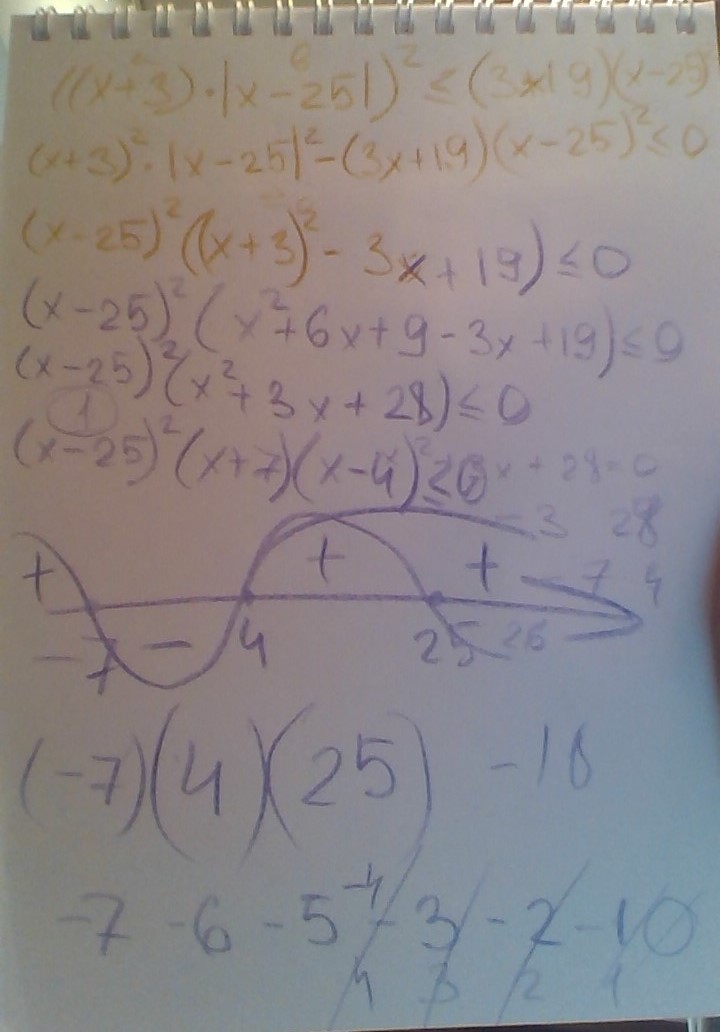 ((x+3)·|x-25|)² ≤ (3x+19)(x-25)²
(x+3)²·|x-25|²-(3x+19)(x-25)²≤0
(x-25)²((x+3)²-3x+19)≤0
(x-25)²(x²+6x+9-3x+19)≤0
(x-25)²(x²+3x+28)≤0
1
(x-25)²(x+7)(x-4)≤0 x+28=0
-3 28
+ - + + -7 4
-7 4 25
(-7)(4)(25) -18
-7 -6 -5 -4 -3 -2 -1 0
4 3 2 1